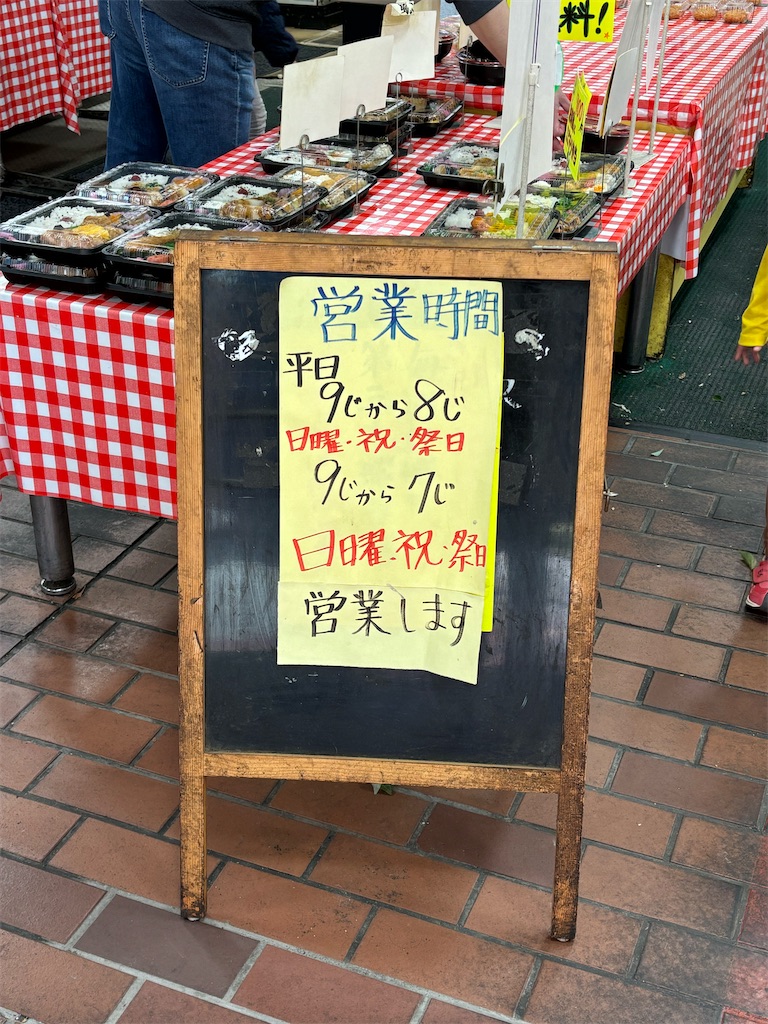 料!
営業時間
平日
9じから8じ
日曜・祝・祭日
9じから7じ
日曜・祝・祭日
営業します